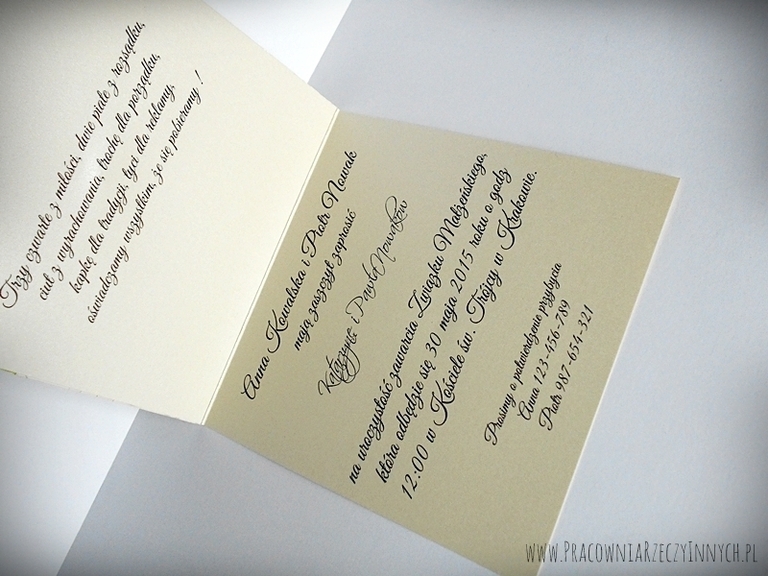 Trzy czwarte z miłości, dwie piąte z rozsądku,
ciut z wyrachowania, trochę dla porządku,
kapkę dla tradycji, tyci dla reklamy,
oświadczamy wszystkim, że się pobieramy !
Anna Kowalska i Piotr Nowak
mają zaszczyt zaprosić
Katarzynę i Pawła Nowaków
na uroczystość zawarcia Związku Małżeńskiego,
która odbędzie się 30 maja 2015 roku o godz
12:00 w Kościele św. Trójcy w Krakowie.
Prosimy o potwierdzenie przybycia
Anna 123-456-789
Piotr 987-654-321
www.PracowniaRzeczyInnych.pl